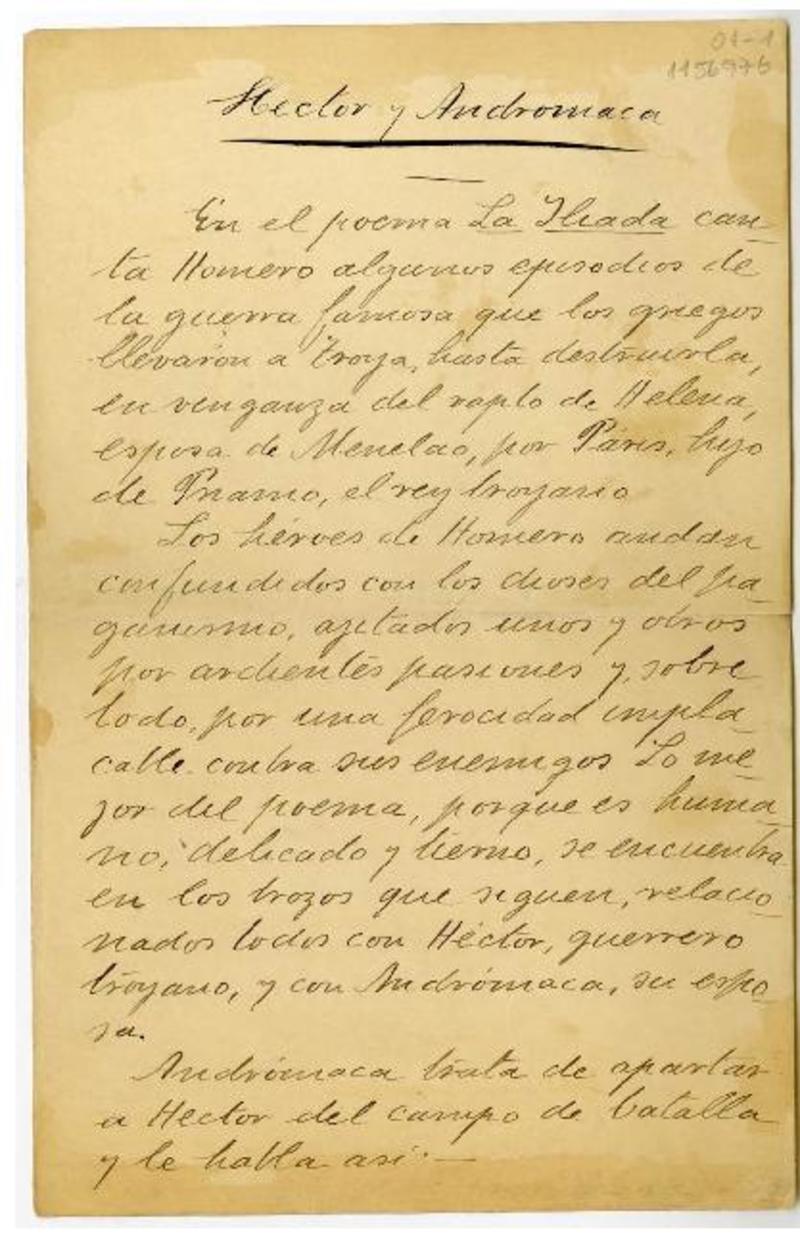 01-1
1156976
Hector y Andromaca
En el poema La Iliada can-
ta Homero algunos episodios de
la guerra famosa que los griegos
llevaron a Troya, hasta destruirla,
en venganza del rapto de Helena,
esposa de Menelao, por Páris, hijo
de Priamo, el rey troyano
Los héroes de Homero andan
confundidos con los dioses del pa-
ganismo, agitados unos y otros
por ardientes pasiones y, sobre
todo, por una ferocidad impla-
cable contra sus enemigos Lo me-
jor del poema, porque es huma-
no, delicado y tierno, se encuentra
en los trozos que siguen, relacio-
nados todos con Héctor, guerrero
troyano, y con Andrómaca, su espo-
sa.
Andrómaca trata de apartar
a Hector del campo de batalla
y le habla asi: —